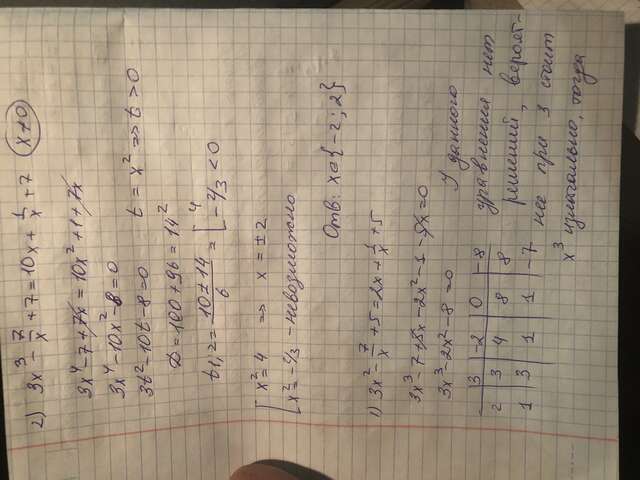 2) 3x³ - 7/x + 7 = 10x + 1/x + 7 (x≠0)
3x⁴ - 7 + 7x = 10x² + 1 + 7x
3x⁴ - 10x² - 8 = 0
3t² - 10t - 8 = 0 t = x² => t > 0
D = 100 + 96 = 14²
t1,2 = (10 ± 14)/6 = [ 4 ; -2/3 < 0
[ x² = 4 => x = ±2
x² = -2/3 - невозможно
Отв: x ∈ {-2; 2}
1) 3x² - 7/x + 5 = 2x + 1/x + 5
3x³ - 7 + 5x - 2x² - 1 - 5x = 0
3x³ - 2x² - 8 = 0
У данного
3 -2 0 -8
уравнения нет
2 3 4 8 8
решений, вероят-
1 3 1 1 -7
нее при 3 стоит
x³ изначально, тогда